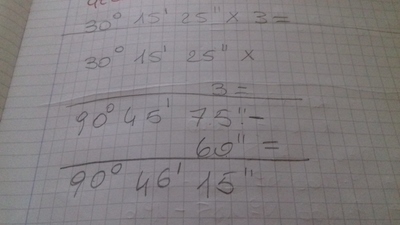 30° 15' 25" x 3 =
30° 15' 25" x
3 =
90° 45' 75" -
60" =
90° 46' 15"